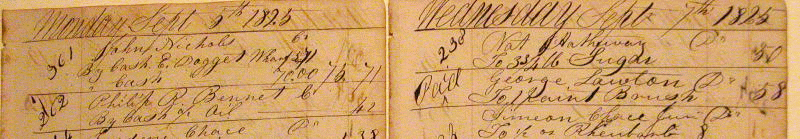 Monday Sept 5th 1825
361 John Nichols Cr
By Cash E. Dogget Wharf
" Cash 70.00 74 71
262 Philip R. Bennet Cr
By Cash & Oil 42
Chace Dr
Wednesday Sept 7th 1825
238 Nat Hathaway Dr
To 3 3/4 lb Sugar 50
Paid George Lawton Dr
To 1 Paint Brush 58
Simeon Chace Jun Dr
To ½ oz Rheubarb 8